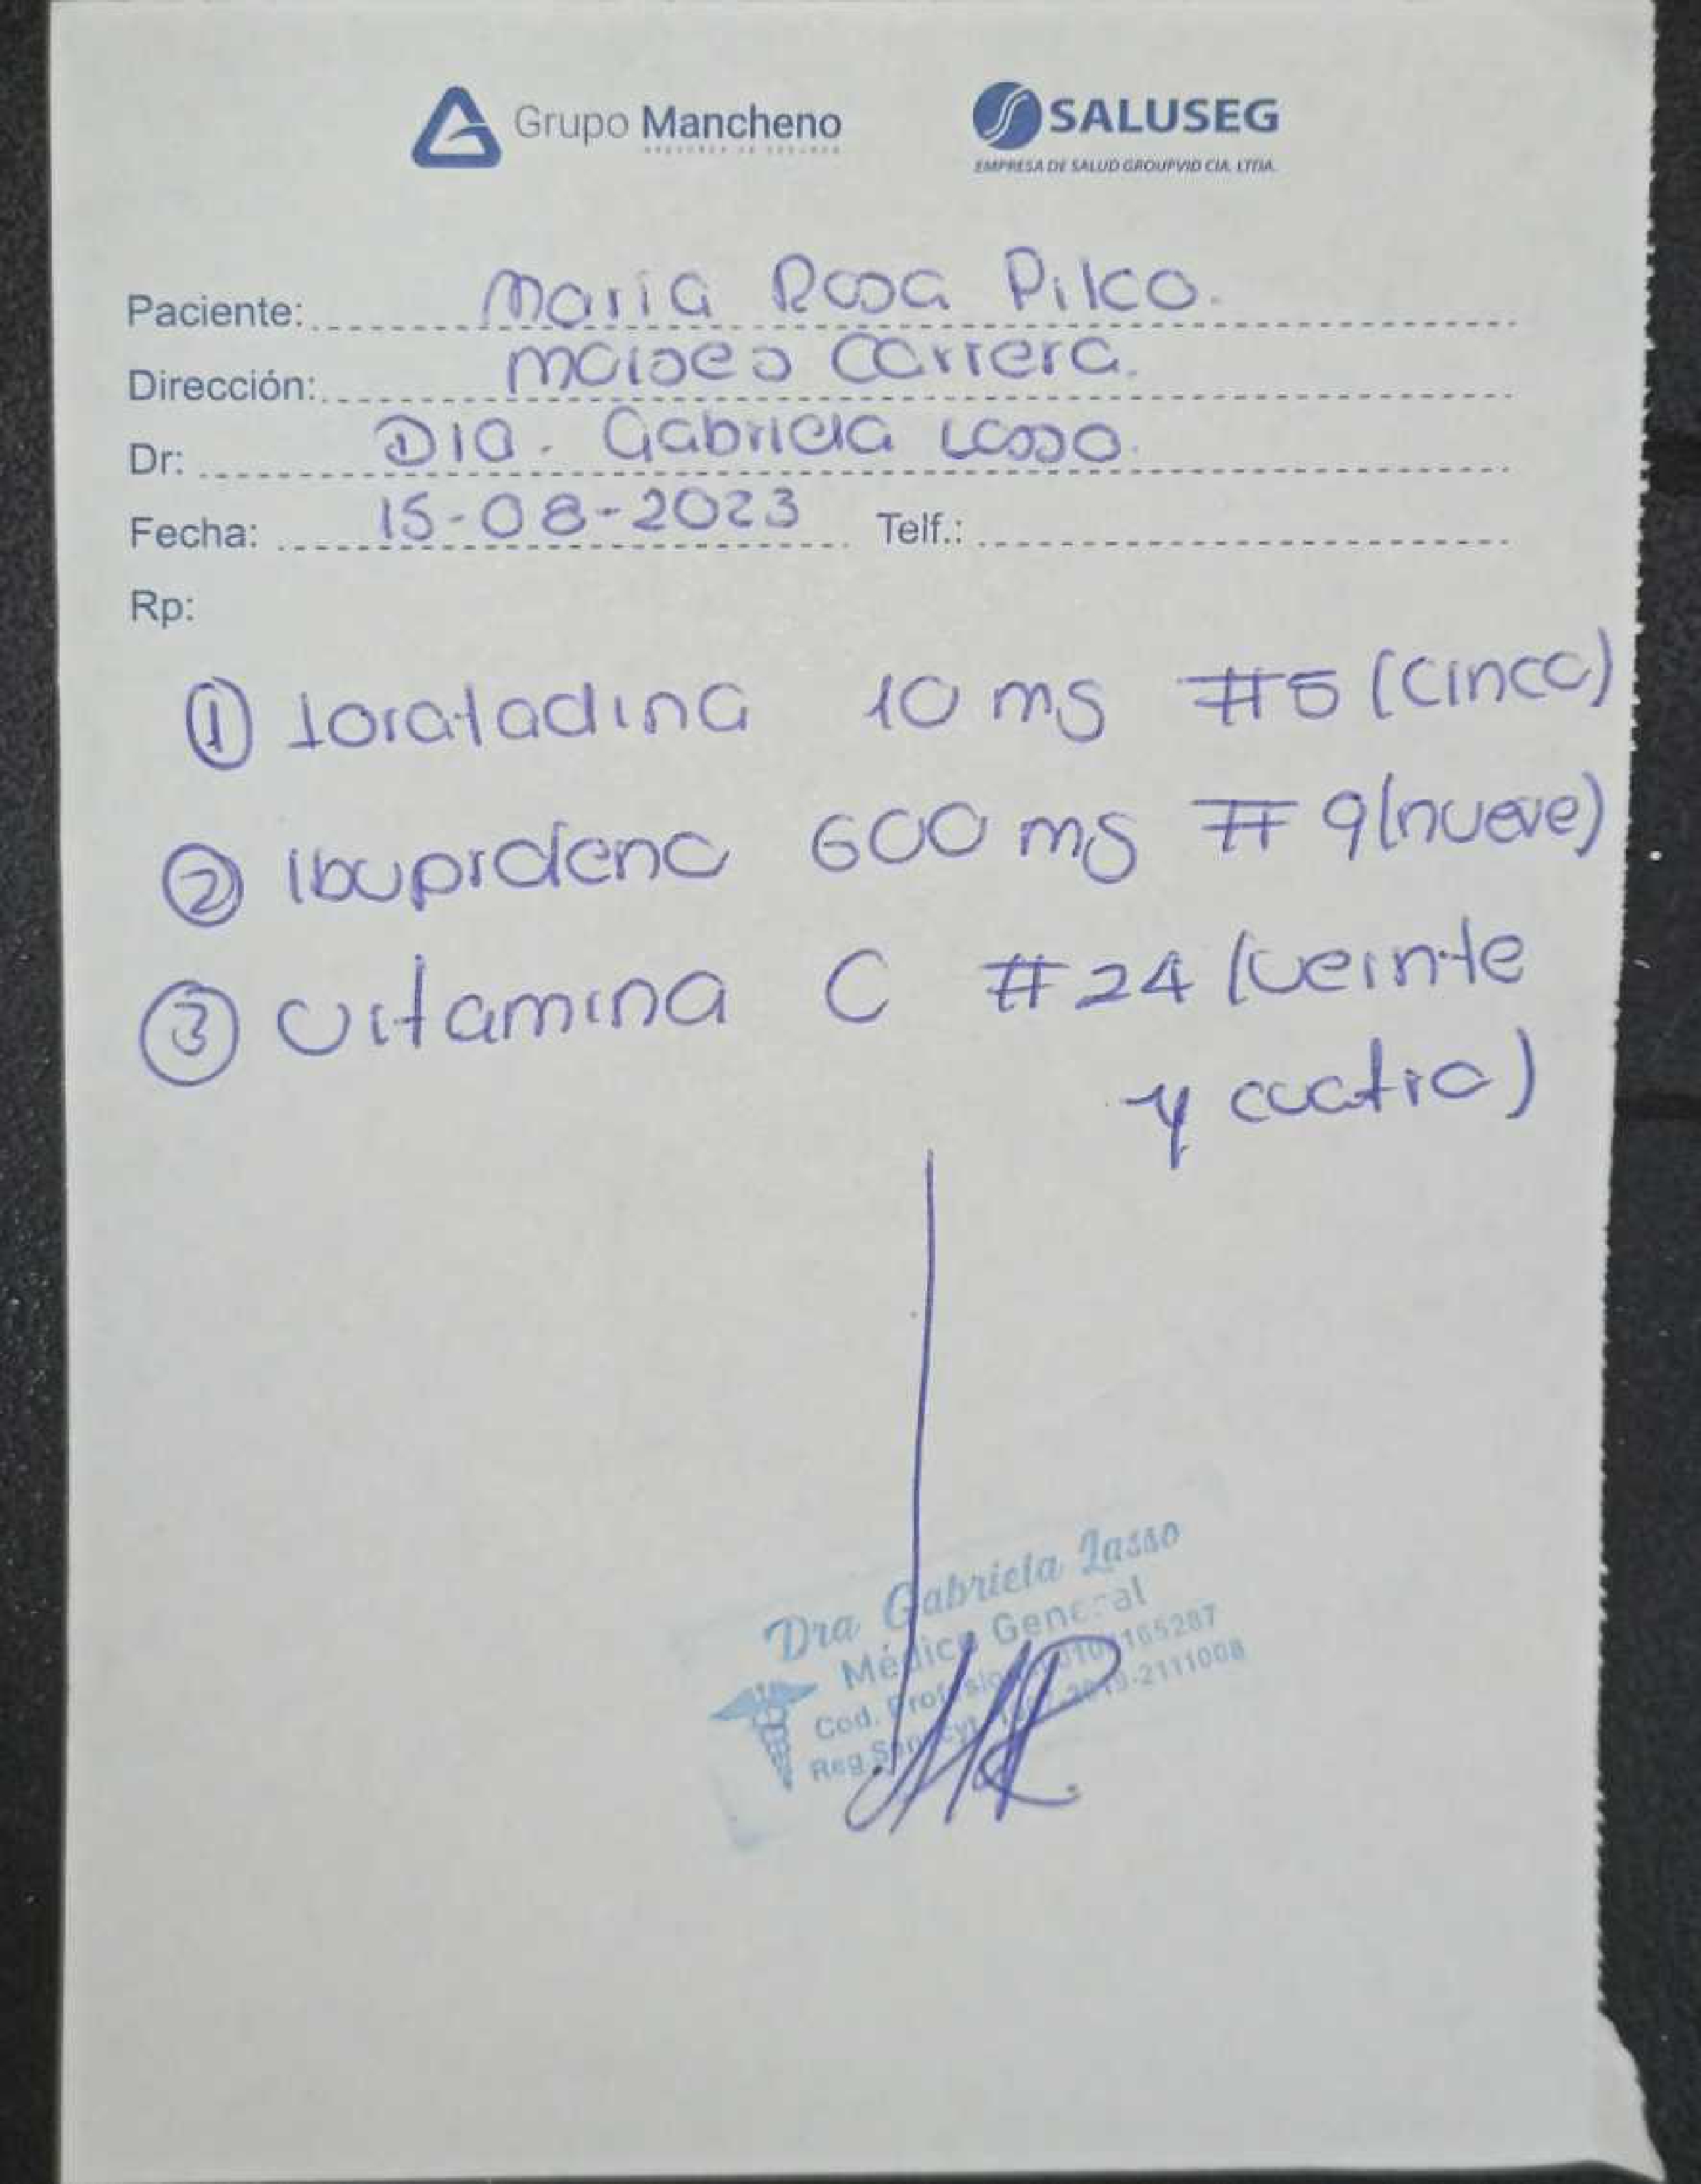 Grupo Mancheno
SALUSEG
EMPRESA DE SALUD GROUPVID CIA. LTDA.
Paciente: Maria Rosa Pilco.
Dirección: Moises Carrera.
Dr: Dra. Gabriela Lasso.
Fecha: 15-08-2023 Telf.:
Rp:
① Loratadina 10 mg #5 (cinco)
② Ibuprofeno 600 mg # 9 (nueve)
③ Vitamina C #24 (veinte
y cuatro)
Dra Gabriela Lasso
Médico General
Cod.
Reg.